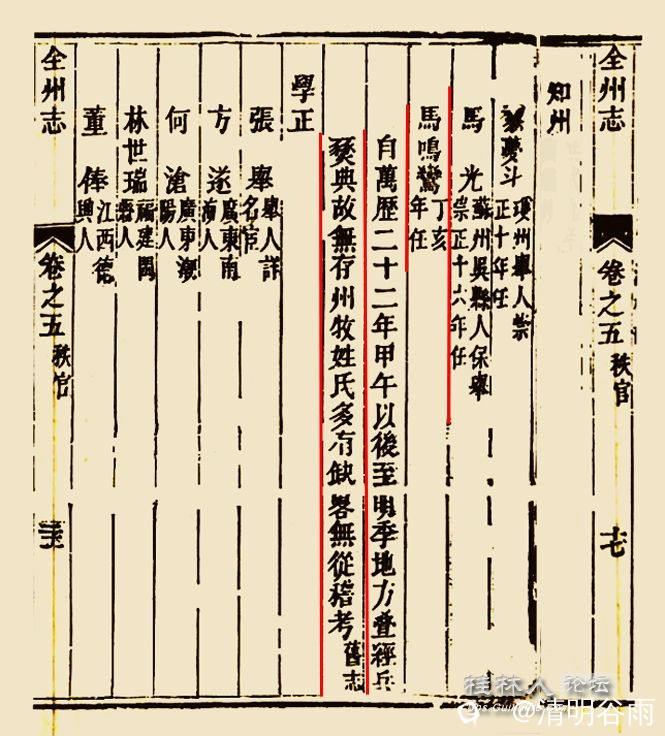 全州志 卷之五 秩官
知州
夢斗 瓊州舉人崇
正十年任
馬光 蘇州吳縣人保舉
崇正十六年任
馬鳴鸞 丁亥
年任
自萬歷二十二年甲午以後至明季地方疊經兵
燹典故無存州牧姓氏多有缺畧無從稽考 舊志
學正
張舉 舉人詳
名宦
方遂 廣東南
海人
何滄 廣東潮
陽人
林世瑞 福建閩
縣人
董俸 江西德
興人
全州志 卷之五 秩官
桂林人论坛
@清明谷雨